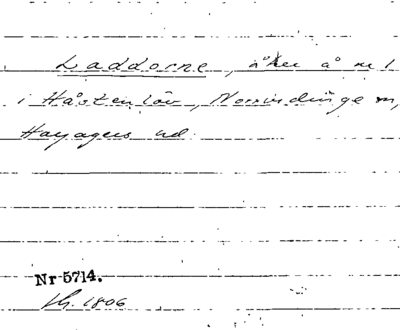 Laddorne, åker å nr 1
i Håstenlöv, Norrvidinge sn,
Harjagers hd.
Nr 5714.
1806